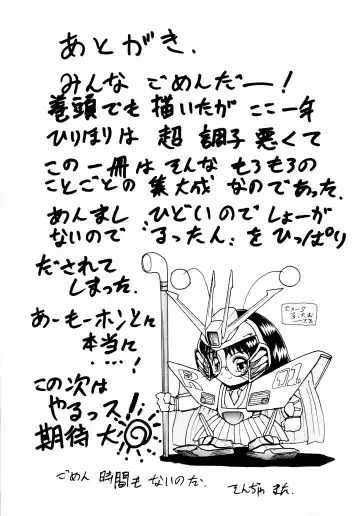 あとがき.
みんな ごめんだー!
巻頭でも 描いたが ここ一年
ひりほりは 超 調子 悪くて
この一冊は そんな もろもろの
ことごとの 集大成 なのであった.
あんまし ひどいので しょーが
ないので 「るったん」を ひっぱり
だされて
しまった.
あーもーホントに
本当に
・・・・!
この次は
やるっス!
期待 大
ごめん 時間も ないのだ.